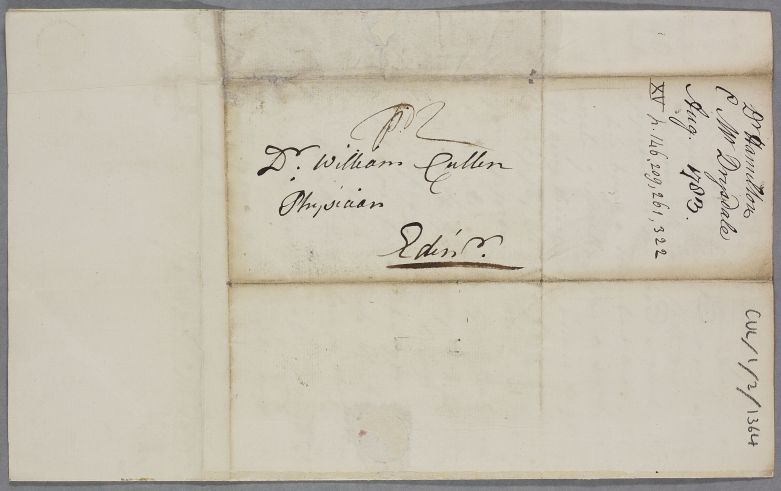 pd 2
Dr. William Cullen
Physician
Edinr.
Dr Hamilton
C Mr Drysdale
Aug. 1783.
XV p. 146, 209, 261, 322
CUL/1/2/1364